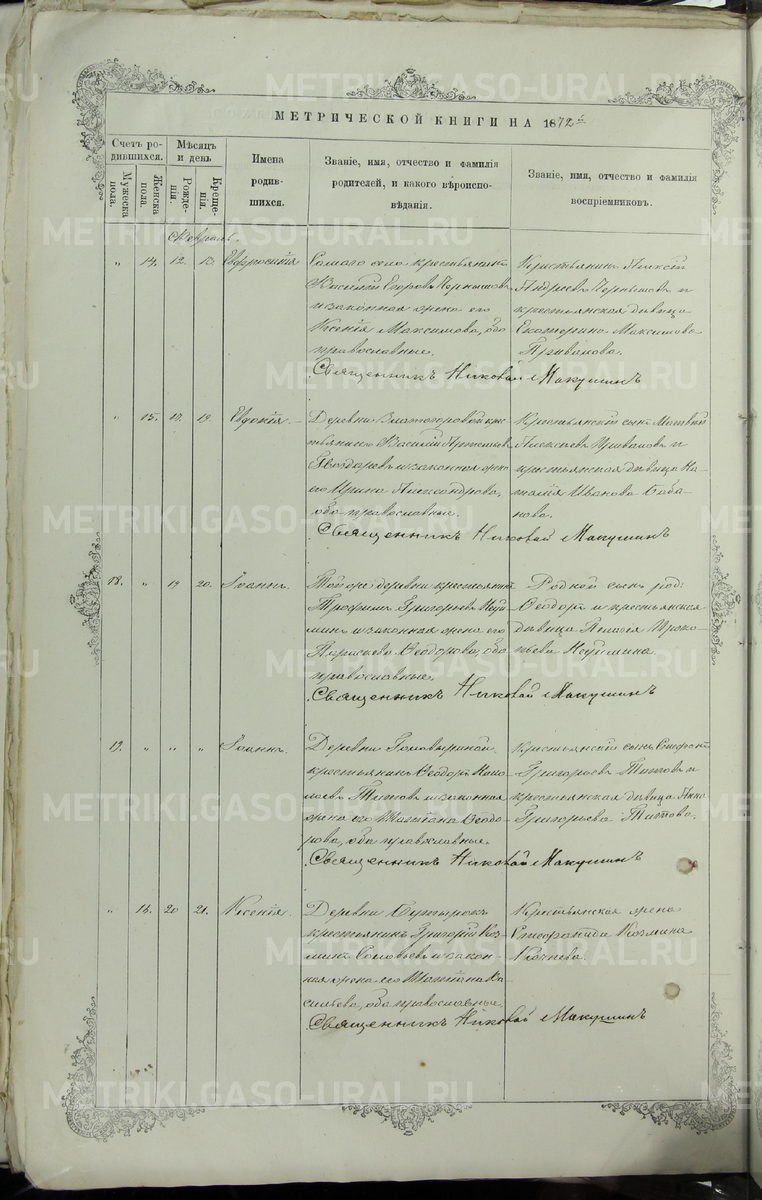 МЕТРИЧЕСКОЙ КНИГИ НА 1872 г
Счетъ ро-
дившихся.
Мѣсяцъ
и день
Имена
родив-
шихся.
Званіе, имя, отчество и фамилія
родителей, и какого вѣроиспо-
вѣданія.
Званіе, имя, отчество и фамилія
воспріемниковъ.
Мужеска
пола.
Женска
пола.
Рожде-
нія.
Креще-
нія.
Февраль.
" 14. 12. 13. Евфросинія
крестьянинъ
Василій Егоровъ
и законная жена его
Ксенія Максимова, оба
православные.
Священникъ Николай Макушинъ
Крестьянинъ Алексій
Андреевъ и
крестьянская дѣвица
Екатерина Максимова
Привалова.
" 15. 19. Евдокія.
Деревни крес-
тьянинъ Василій
и законная жена
его Ирина Александрова,
оба православные.
Священникъ Николай Макушинъ
Крестьянскій сынъ Матвѣй
Алексѣевъ Приваловъ и
крестьянская дѣвица На-
талія Иванова
18. " 19 20. Іоаннъ.
Той же деревни крестьянинъ
Трофимъ Григорьевъ Неуй-
минъ и законная жена его
Параскева Ѳеодорова, оба
православные.
Священникъ Николай Макушинъ
Родной сынъ род:
Ѳеодоръ и крестьянская
дѣвица Пелагія Проко-
пьева Неуймина.
19. " " " Іоаннъ.
Деревни
крестьянинъ Ѳеодоръ Нико-
лаевъ Титовъ и законная
жена его Татіана Ѳеодо-
рова, оба православные.
Священникъ Николай Макушинъ
Крестьянскій сынъ Стефанъ
Григорьевъ Титовъ и
крестьянская дѣвица Анна
Григорьева Титова.
" 16. 20 21. Ксенія.
Деревни Бутырокъ
крестьянинъ Григорій Коз-
минъ Соловьевъ и закон-
ная жена его Татіана Ва-
сильева, оба православные.
Священникъ Николай Макушинъ
Крестьянская жена
Стефанида Козмина
METRIKI.GASO-URAL.RU